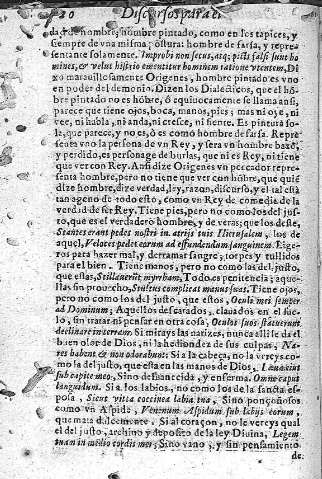 20 Discursos para el
dad de nombre, hombre pintado, como en los tapices, y
siempre de vna misma postura: hombre de farsa, y repre-
sentante solamente. Improbi non secus, atq; picti falsi sunt ho
mines, & velut histrio ementitur hominem ratione vtentem. Di
xo marauillosamente Origenes, hombre pintado es vno
en poder del demonio. Dizen los Dialecticos, que el hō-
bre pintado no es hōbre, ò equiuocamente se llama ansi,
parece que tiene ojos, boca, manos, pies; mas ni oye, ni
vee, ni habla, ni anda, ni crece, ni siente. Es pintura so-
la, que parece, y no es, ò es como hombre de farsa. Repre-
senta vno la persona de vn Rey, y sera vn hombre baxo,
y perdido, es personage de burlas, que ni es Rey, ni tiene
que ver con Rey. Ansi dize Origenes vn pecador repre-
senta hombre, pero no tiene que ver con hōbre, que quiē
dize hombre, dize verdad, ley, razon, discurso, y el tal està
tan ageno de todo esto, como vn Rey de comedia de la
verdad de ser Rey. Tiene pies, pero no como los del jus-
to, que es el verdadero hombre, y de veras; que los deste,
Stantes erant pedes nostri in atrijs tuis Hierusalem, los de
aquel, Veloces pedes eorum ad effundendum sanguinem. Lige-
ros para hazer mal, y derramar sangre, torpes y tullidos
para el bien. Tiene manos, pero no como las del justo,
que estas, Stillauerūt myrrham, Toda es penitencia; aque-
llas sin prouecho, Stultus complicat manus suas. Tiene ojos,
pero no como los del justo, que estos, Oculi mei semper
ad Dominum; Aquellos descarados, clauados en el sue-
lo, sin tratar ni pensar en otra cosa, Oculos suos statuerunt
declinare in terram. Si mirays las narizes, nunca alli se da el
buen olor de Dios, ni la hediondez de sus culpas, Na-
res habent & non odorabunt: Si a la cabeça, no la vereys co-
mo la del justo, que esta en las manos de Dios, Laeua eius
sub capite meo, Sino desuanecida, y enferma. Omne caput
languidum. Si a los labios, no como los de la santa es-
posa, Sicut vitta coccinea labia tua, Sino ponçoñosos
como vn Aspide, Venenum Aspidum sub labijs eorum,
que mata dulcemente. Si al coraçon, no le vereys qual
el del justo, archiuo y deposito de la ley Diuina, Legem
tuam in medio cordis mei; Sino vano, y sin pensamiento
de